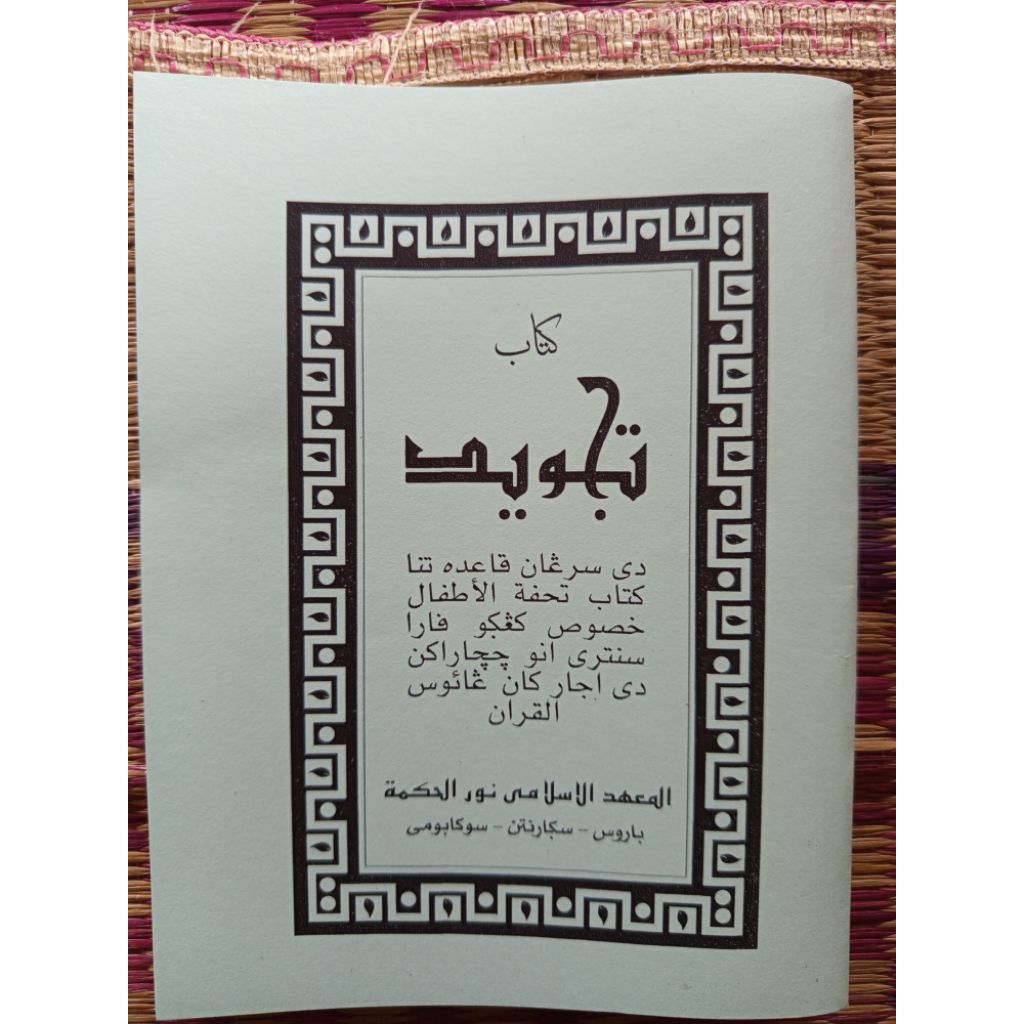 كتاب
تجويد
دى سرڠان قاعده تنا
كتاب تحفة الأطفال
خصوص كڠݢو فارا
سنترى انو چچاراكن
دى اجار كان ڠائوس
القران
المعهد الإسلامى نور الحكمة
باروس - سݢارنتن - سوكابومى